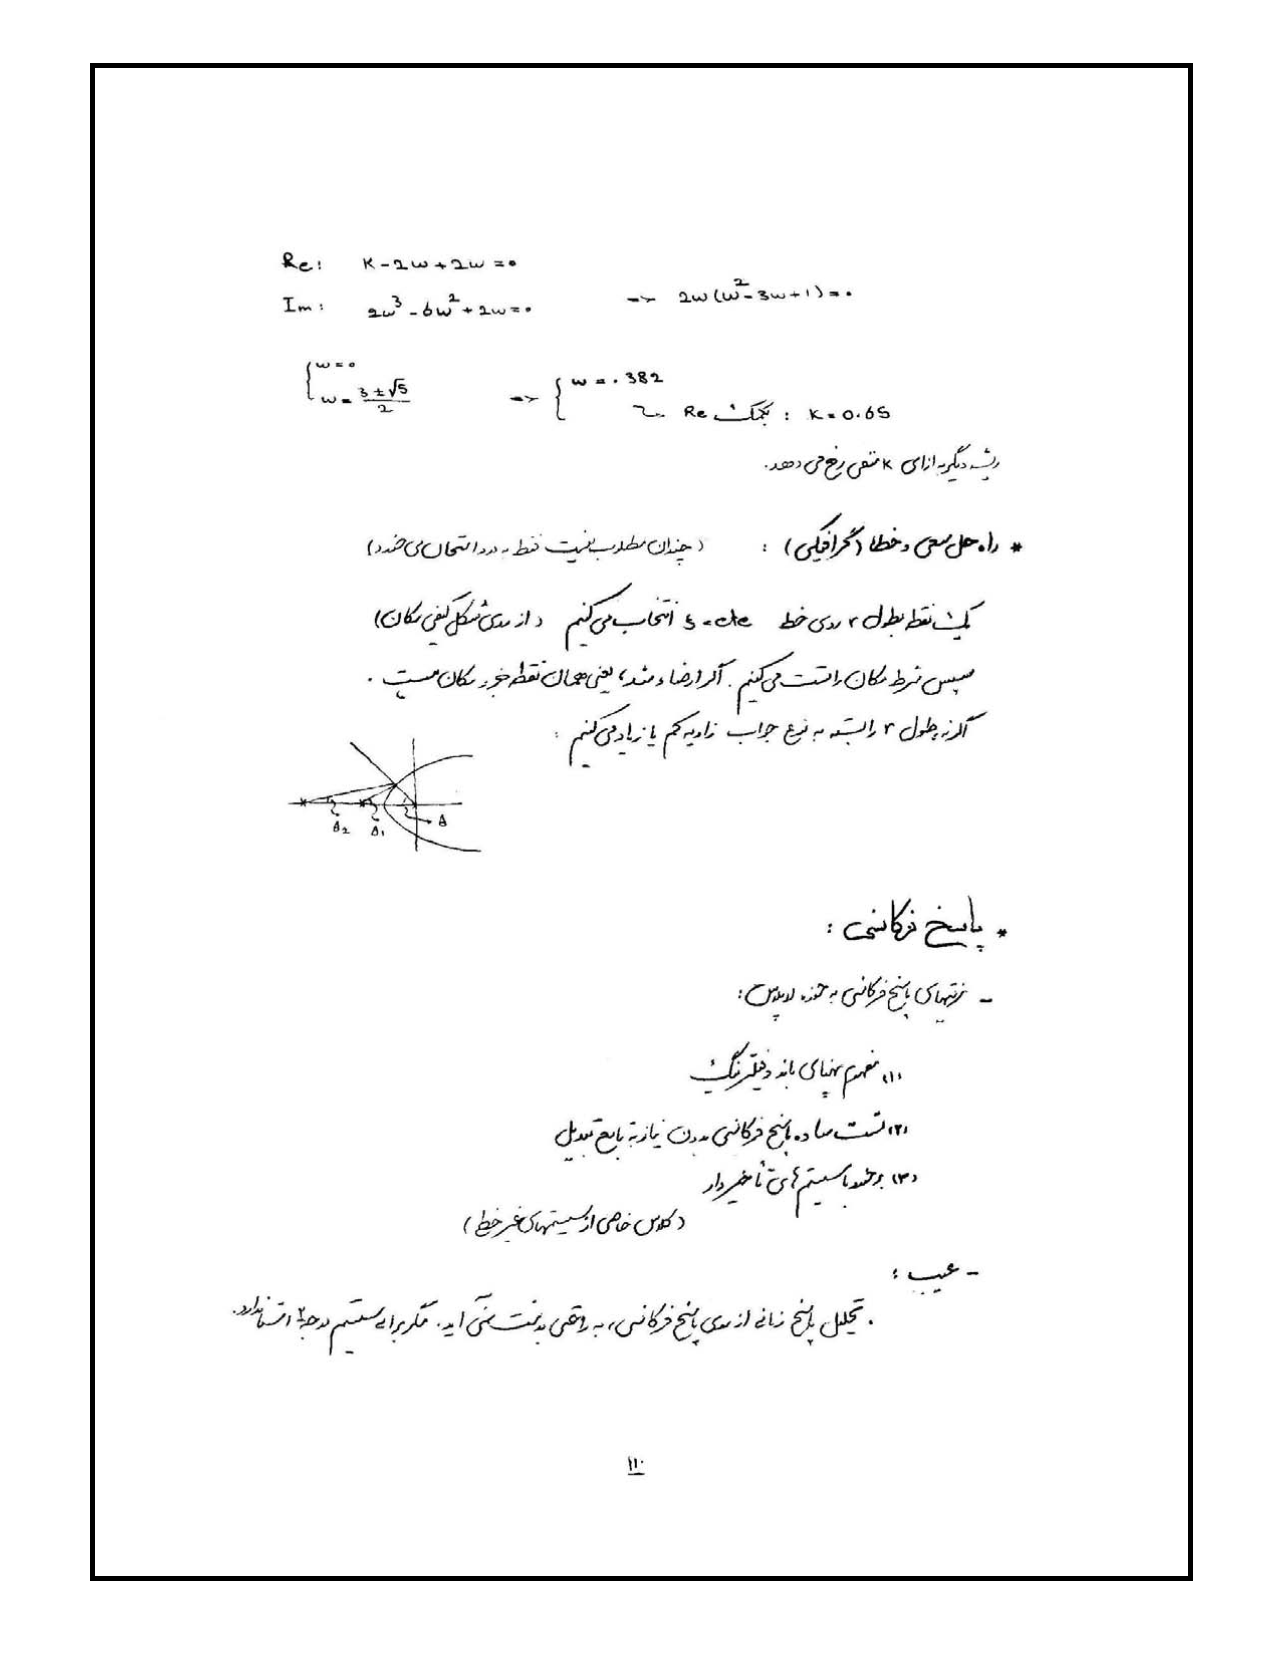 Re: K - 2ω + 2ω = 0
Im: 2ω³ - 6ω² + 2ω = 0 → 2ω(ω² - 3ω + 1) = 0
{ ω = 0
ω = (3 ± √5)/2 → { ω = .382
Re بکمک : K = 0.65
ریشه دیگر به ازای K منفی رخ می دهد.
* راه حل سعی و خطا (گرافیکی) : (چندان مطلوب نیست فقط به درد امتحان می خورد)
یک نقطه بطول r روی خط انتخاب می کنیم (از روی شکل کیفی مکان)
سپس شرط مکان را تست می کنیم. اگر ارضاء شد، یعنی همان نقطه جزء مکان است.
اگر نه طول r را بسته به نوع جواب زاویه کم یا زیاد می کنیم :
θ₂ θ₁ θ
* پاسخ فرکانسی :
- مزیتهای پاسخ فرکانسی به حوزه لاپلاس:
(۱) مفهوم پهنای باند و فیلترینگ
(۲) تست ساده پاسخ فرکانسی بدون نیاز به تابع تبدیل
(۳) برخورد با سیستم های تأخیردار
(کلاس خاصی از سیستمهای غیرخطی)
- عیب :
. تحلیل پاسخ زمانی از روی پاسخ فرکانسی، به راحتی بدست نمی آید. مگر برای سیستم درجه ۲ استاندارد.
۱۱۰